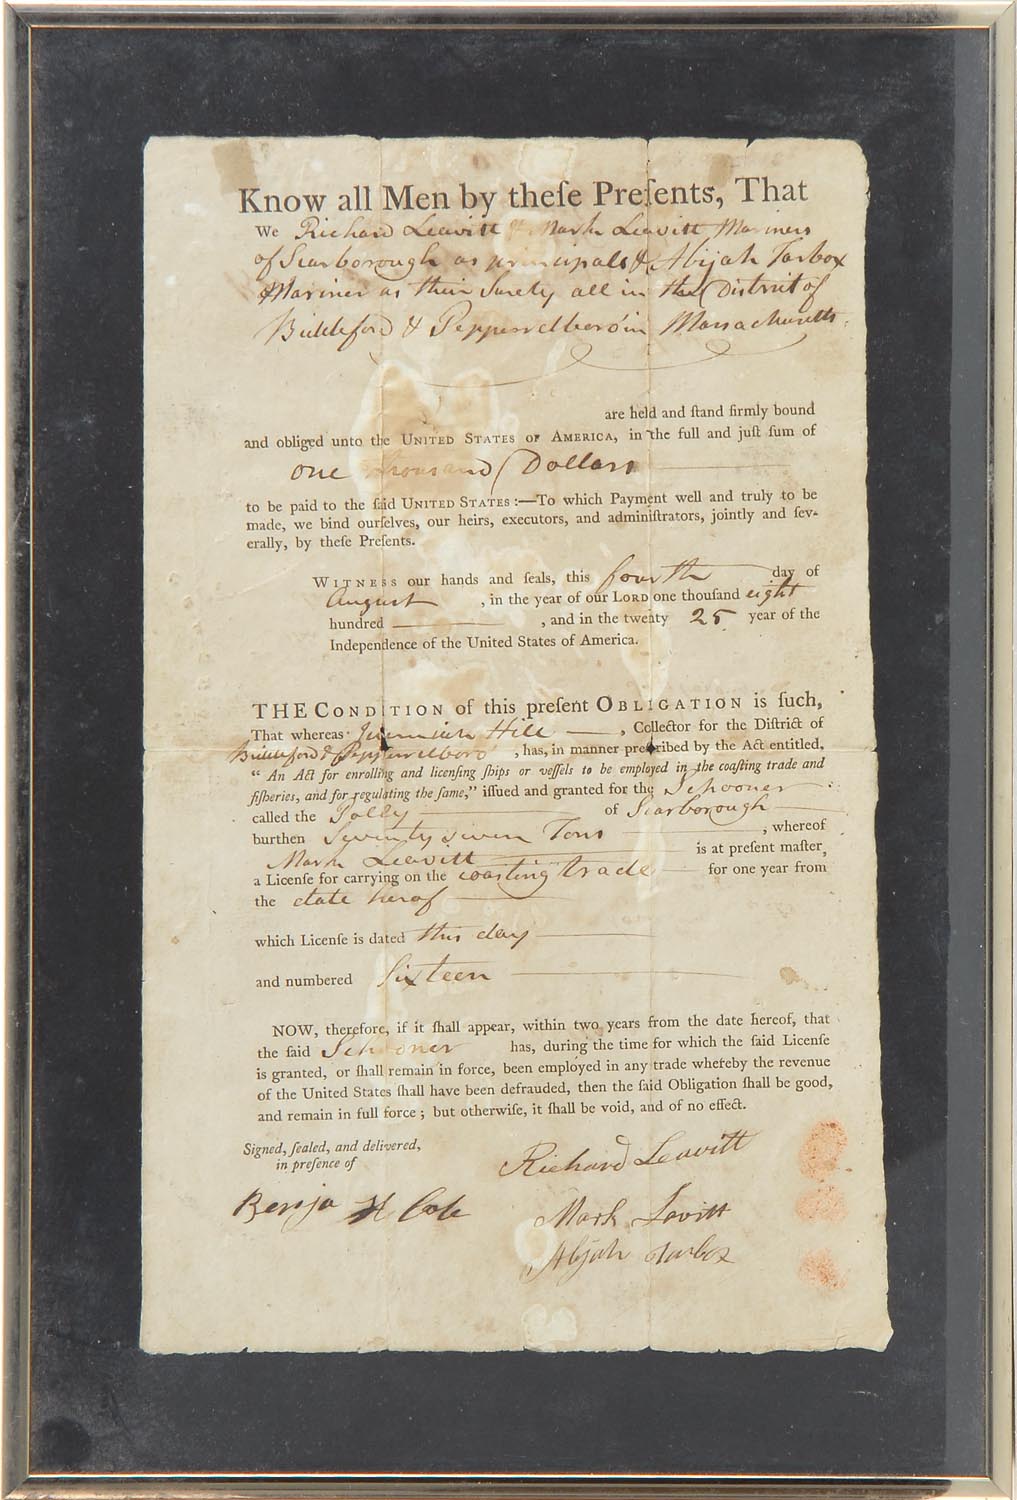 Know all Men by theſe Preſents, That
We Richard Leavitt & Mark Leavitt Mariners
of Scarborough as principals & Abijah Tarbox
Mariner as their Surety all in the District of
Biddeford & Pepperrelboro' in Massachusetts
are held and ſtand firmly bound
and obliged unto the UNITED STATES OF AMERICA, in the full and juſt ſum of
one thousand Dollars
to be paid to the ſaid UNITED STATES :—To which Payment well and truly to be
made, we bind ourſelves, our heirs, executors, and adminiſtrators, jointly and ſev-
erally, by theſe Preſents.
WITNESS our hands and ſeals, this fourth day of
August , in the year of our LORD one thouſand eight
hundred , and in the twenty 25 year of the
Independence of the United States of America.
THE CONDITION of this preſent OBLIGATION is ſuch,
That whereas Jeremiah Hill , Collector for the Diſtrict of
Biddeford & Pepperrelboro' , has, in manner preſcribed by the Act entitled,
“ An Act for enrolling and licenſing ſhips or veſſels to be employed in the coaſting trade and
fiſheries, and for regulating the ſame,” iſſued and granted for the Schooner
called the Polly of Scarborough
burthen Seventy seven Tons , whereof
Mark Leavitt is at preſent maſter,
a Licenſe for carrying on the coasting trade for one year from
the date herof
which Licenſe is dated this day
and numbered Sixteen
NOW, therefore, if it ſhall appear, within two years from the date hereof, that
the ſaid Schooner has, during the time for which the ſaid Licenſe
is granted, or ſhall remain in force, been employed in any trade whereby the revenue
of the United States ſhall have been defrauded, then the ſaid Obligation ſhall be good,
and remain in full force ; but otherwiſe, it ſhall be void, and of no effect.
Signed, ſealed, and delivered,
in preſence of
Richard Leavitt
Benja H Cole
Mark Levitt
Abijah Tarbox